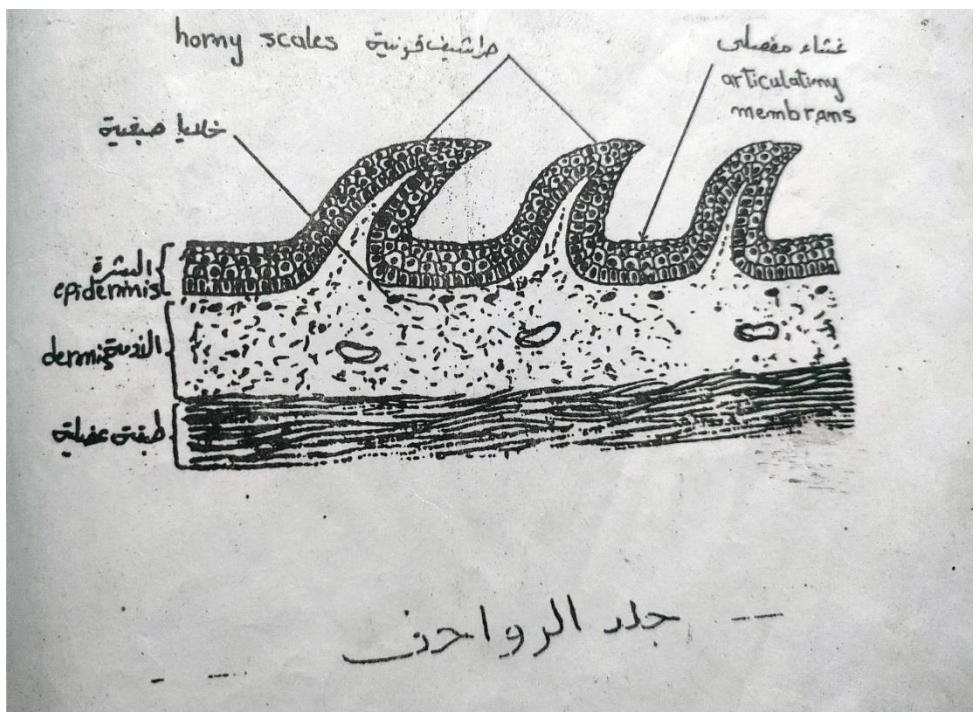 horny scales حراشيف قرنية
غشاء مفصلى
articulating
membrans
خلايا صبغية
البشرة
epidermis
الأدمة
dermis
طبقة عضلية
جلد الزواحف